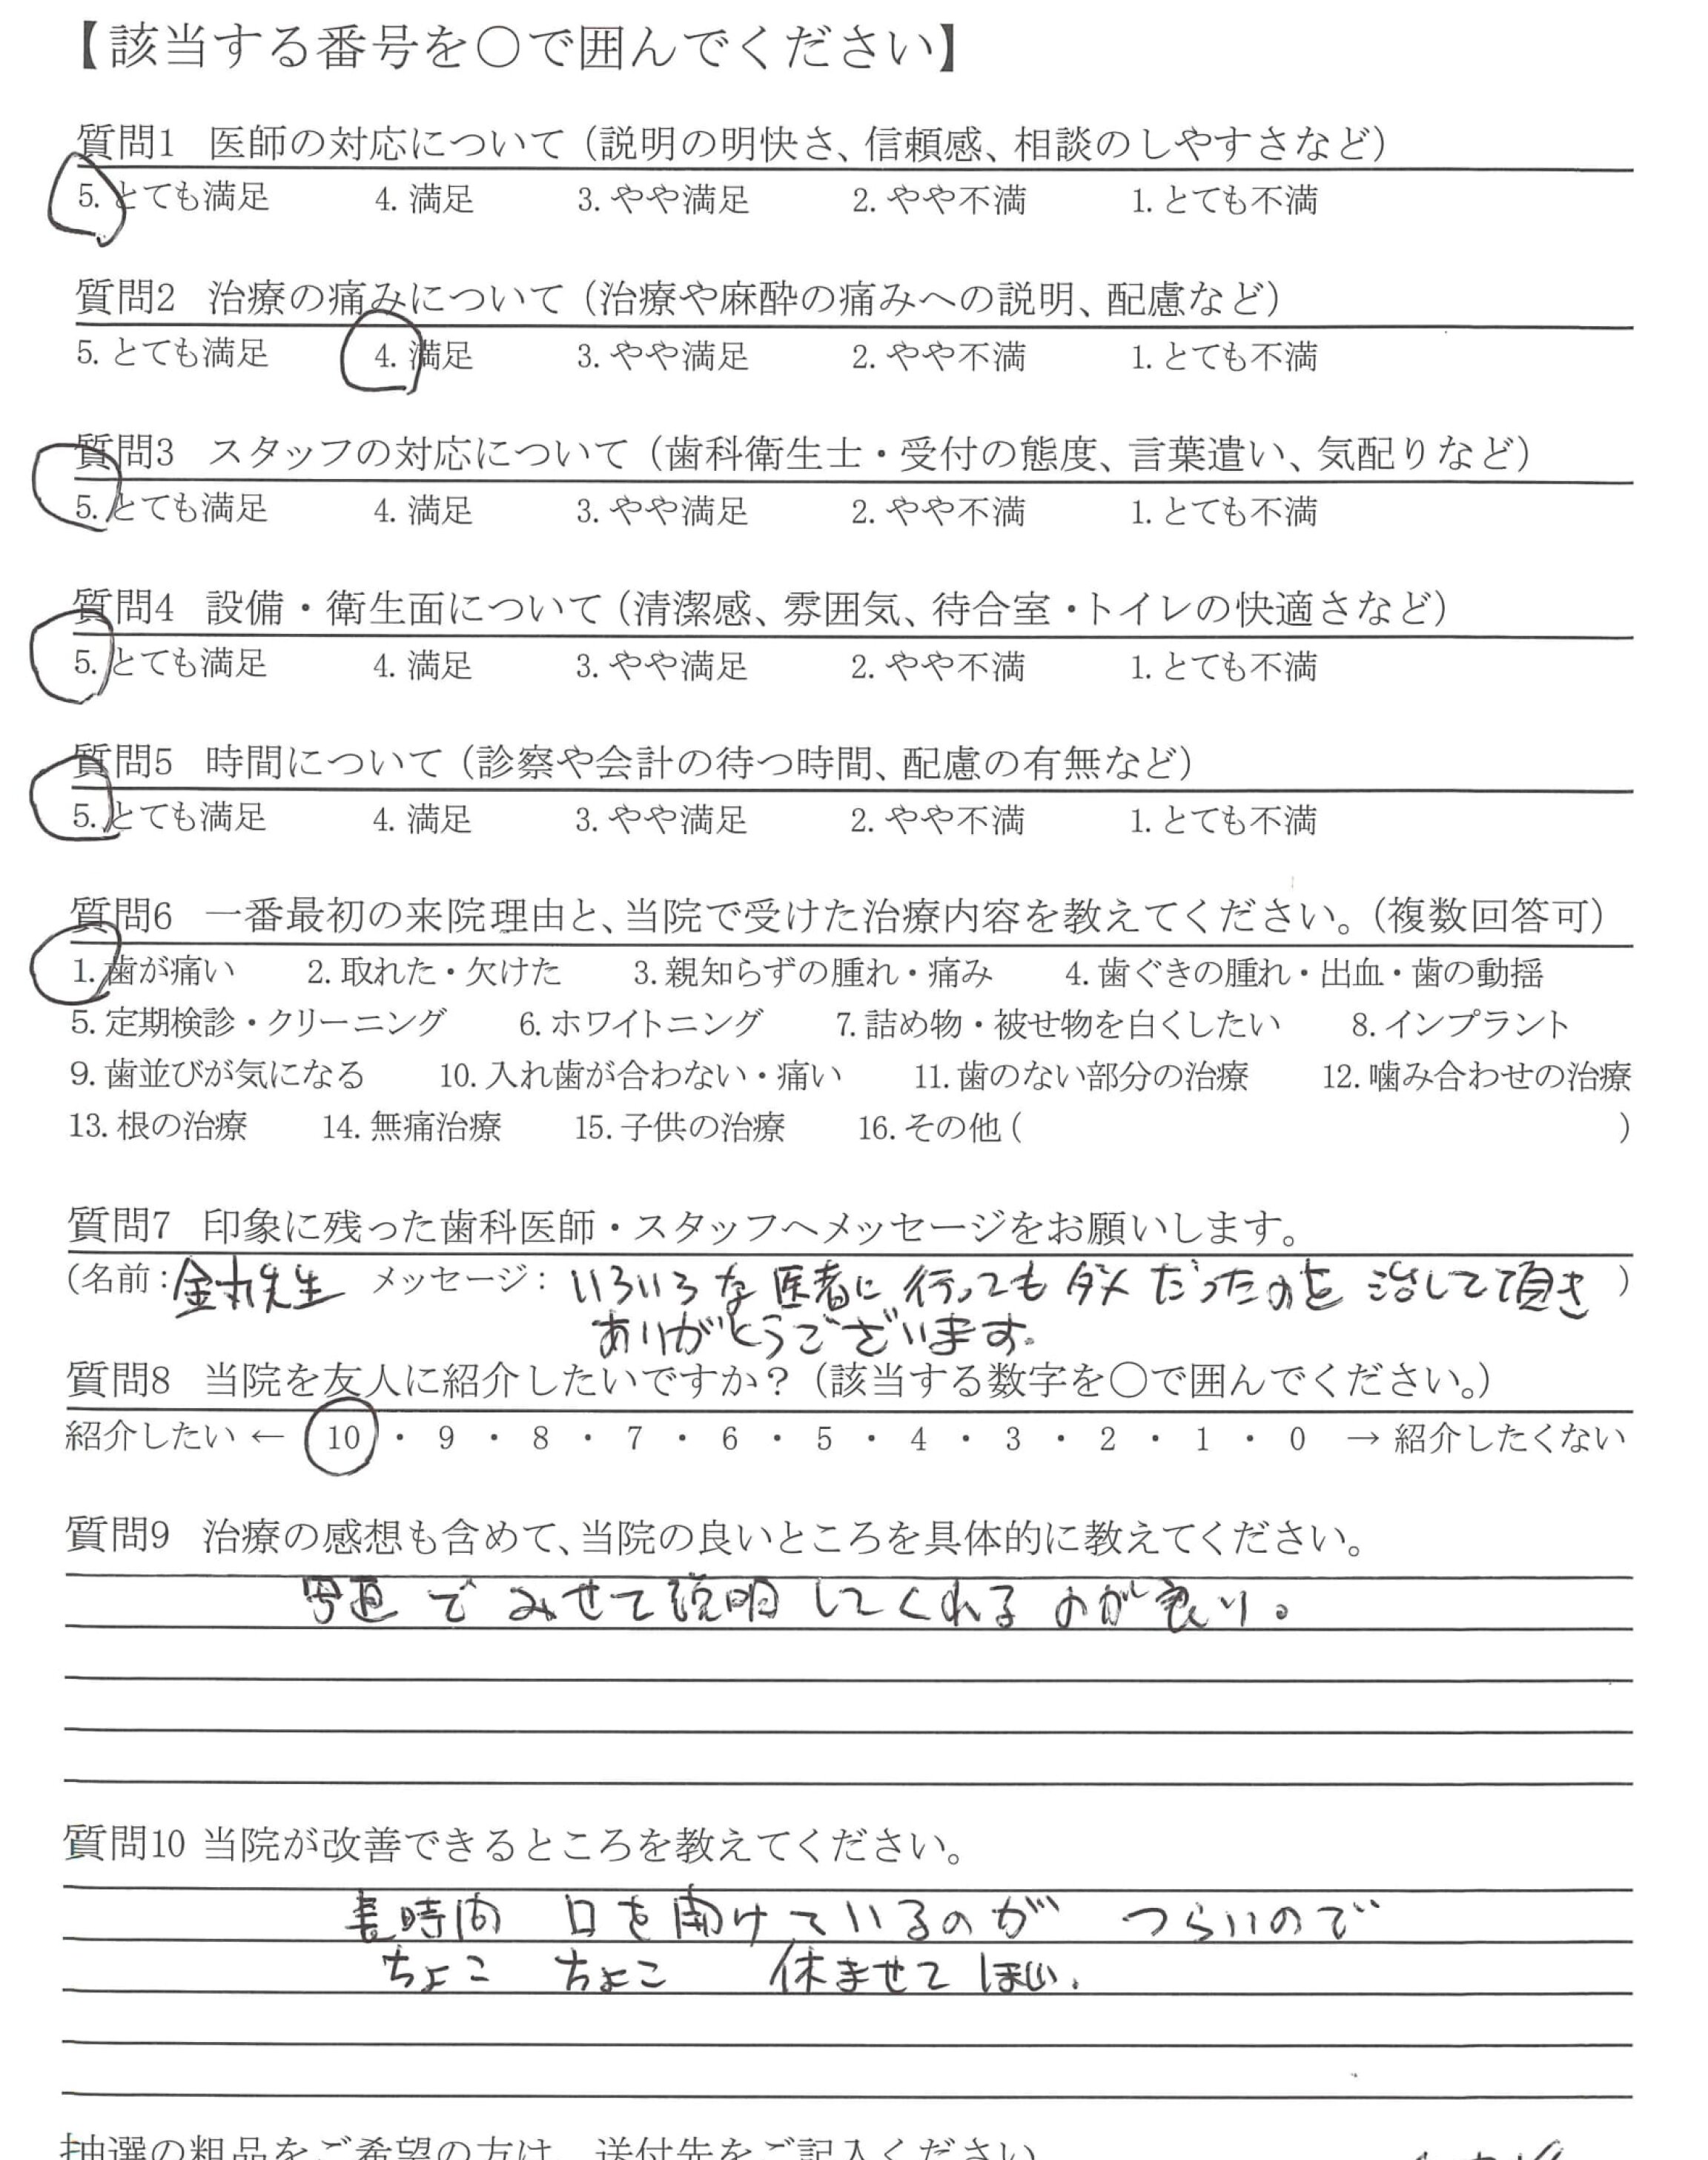 【該当する番号を〇で囲んでください】
質問1 医師の対応について（説明の明快さ、信頼感、相談のしやすさなど）
5. とても満足 4. 満足 3. やや満足 2. やや不満 1. とても不満
質問2 治療の痛みについて（治療や麻酔の痛みへの説明、配慮など）
5. とても満足 4. 満足 3. やや満足 2. やや不満 1. とても不満
質問3 スタッフの対応について（歯科衛生士・受付の態度、言葉遣い、気配りなど）
5. とても満足 4. 満足 3. やや満足 2. やや不満 1. とても不満
質問4 設備・衛生面について（清潔感、雰囲気、待合室・トイレの快適さなど）
5. とても満足 4. 満足 3. やや満足 2. やや不満 1. とても不満
質問5 時間について（診察や会計の待つ時間、配慮の有無など）
5. とても満足 4. 満足 3. やや満足 2. やや不満 1. とても不満
質問6 一番最初の来院理由と、当院で受けた治療内容を教えてください。（複数回答可）
1. 歯が痛い 2. 取れた・欠けた 3. 親知らずの腫れ・痛み 4. 歯ぐきの腫れ・出血・歯の動揺
5. 定期検診・クリーニング 6. ホワイトニング 7. 詰め物・被せ物を白くしたい 8. インプラント
9. 歯並びが気になる 10. 入れ歯が合わない・痛い 11. 歯のない部分の治療 12. 噛み合わせの治療
13. 根の治療 14. 無痛治療 15. 子供の治療 16. その他（ ）
質問7 印象に残った歯科医師・スタッフへメッセージをお願いします。
（名前：金丸先生 メッセージ：いろいろな医者に行ってもダメだったのを治して頂き）
ありがとうございます。
質問8 当院を友人に紹介したいですか？（該当する数字を〇で囲んでください。）
紹介したい ← 10 ・ 9 ・ 8 ・ 7 ・ 6 ・ 5 ・ 4 ・ 3 ・ 2 ・ 1 ・ 0 → 紹介したくない
質問9 治療の感想も含めて、当院の良いところを具体的に教えてください。
写真でみせて説明してくれるのが良い。
質問10 当院が改善できるところを教えてください。
長時間 口を開けているのが つらいので
ちょこ ちょこ 休ませてほしい.
抽選の粗品をご希望の方は、送付先をご記入ください